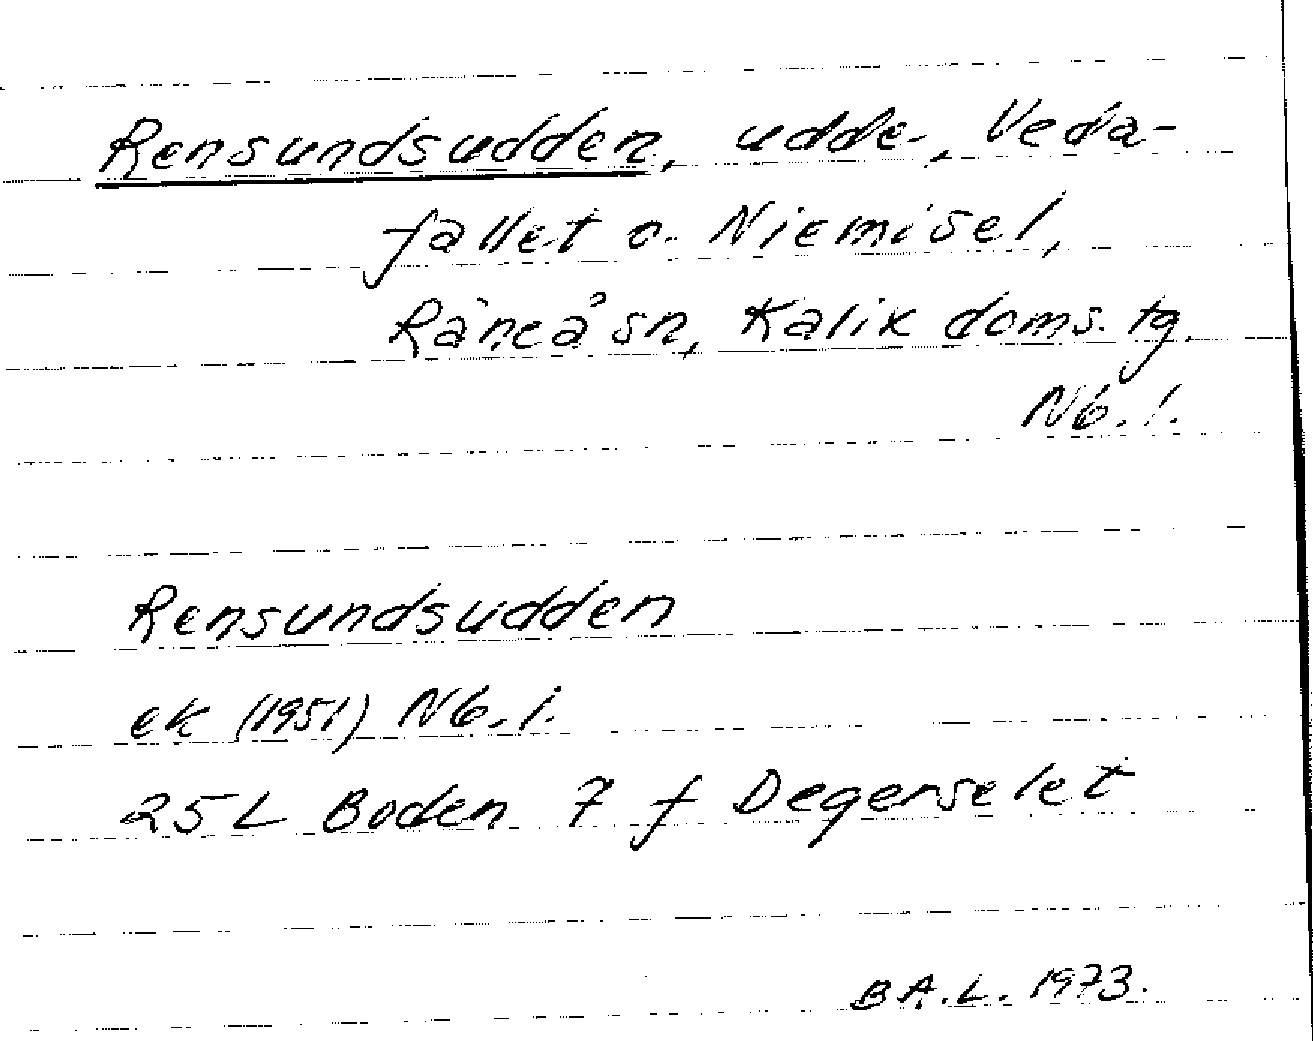 Rensundsudden, udde, Veda-
fallet o. Niemisel,
Råneå sn, Kalix doms. tg.
Nb. l.
Rensundsudden
ek (1951) Nb. l.
25L Boden 7 f Degerselet
B A. L. 1973.